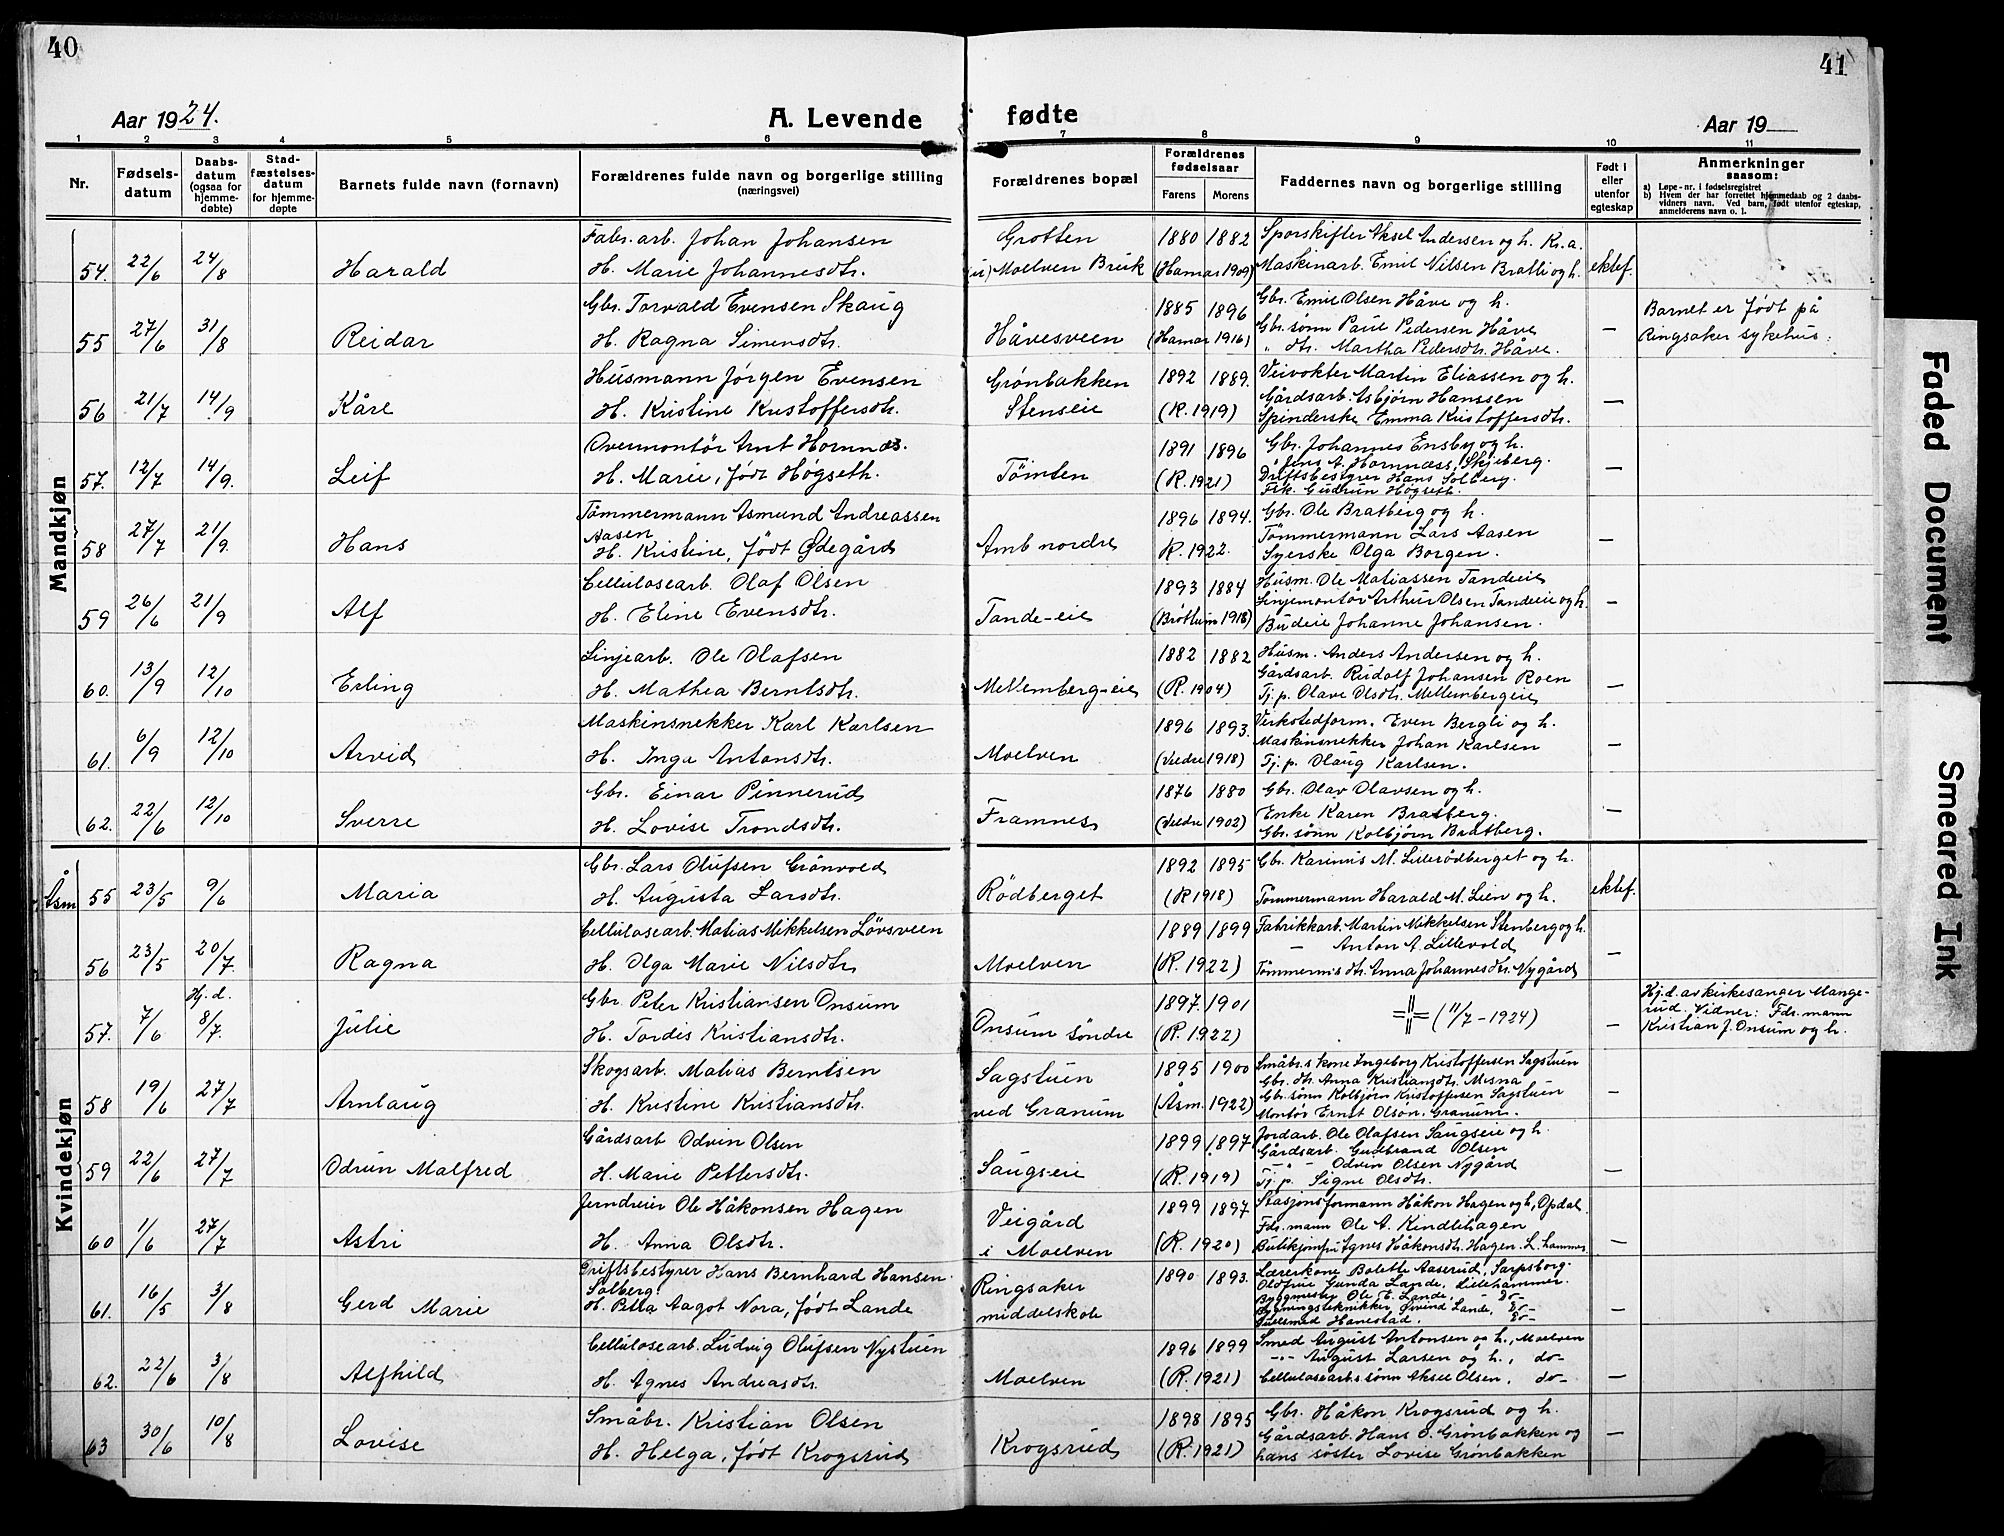 40
41
Aar 1924.
A. Levende
fødte
Aar 19
1 2 3 4 5 6 7 8 9 10 11
Nr.
Fødsels-
datum
Daabs-
datum
(ogsaa for
hjemme-
døbte)
Stad-
fæstelses-
datum
for hjemme-
døpte
Barnets fulde navn (fornavn)
Forældrenes fulde navn og borgerlige stilling
(næringsvei)
Forældrenes bopæl
Forældrenes
fødselsaar
Farens Morens
Faddernes navn og borgerlige stilling
Født i
eller
utenfor
egteskap
Anmerkninger
saasom:
a) Løpe-nr. i fødselsregistret
b) Hvem der har forrettet hjemmedaab og 2 daabs-
vidners navn. Ved barn, født utenfor egteskap,
anmelderens navn o. l.
Mandkjøn
54. 22/6 24/8 Harald
Fabr.arb. Johan Johansen
H. Marie Johannesdtr.
Grotten
Moelven Bruk
1880 1882
(Hamar 1909)
Sporskifter Aksel Andersen og h. Kr.a.
Maskinarb. Emil Nilsen Bratli og h.
ektef.
55 27/6 31/8 Reidar
Gbr. Torvald Evensen Skaug
H. Ragna Simensdtr.
Håvesveen
1885 1896
(Hamar 1916)
Gbr. Emil Olsen Håve og h.
Gbr.sønn Paul Pedersen Håve
" dtr. Martha Pedersdtr. Håve.
—
Barnet er født på
Ringsaker sykehus.
56 21/7 14/9 Kåre
Husmann Jørgen Evensen
H. Kristine Kristoffersdtr.
Grønbakken
Stenseie
1892 1889.
(R. 1919)
Veivokter Martin Eliassen og h.
Gårdsarb. Asbjørn Hanssen
Spinderske Emma Kristoffersdtr.
—
57. 12/7 14/9. Leif
Overmontør Arnt Hornnæs.
H. Marie, født Høgseth.
Tømten
1891 1896
(R. 1921)
Gbr. Johannes Ensby og h.
" Jens A. Hornnæss, Skjeberg.
Driftsbestyrer Hans Solberg.
Frk. Gudrun Høgseth.
—
58 27/7 21/9. Hans
Tømmermann Asmund Andreassen
Aasen
H. Kristine, født Ødegård
Amb nordre
1896 1894.
R. 1922.
Gbr. Ole Bratberg og h.
Tømmermann Lars Aasen
Syerske Olga Borgen.
—
59 26/6 21/9 Alf
Cellulosearb. Olaf Olsen
H. Eline Evensdtr.
Tande-eie
1893 1884
(Brøttum 1918)
Husm. Ole Matiassen Tandeeie
Linjemontør Arthur Olsen Tandeeie og h.
Budeie Johanne Johansen.
—
60. 13/9 12/10 Erling
Linjearb. Ole Olafsen
H. Mathea Berntsdtr.
Mellemberg-eie
1882 1882
(R. 1904)
Husm. Anders Andersen og h.
Gårdsarb. Rudolf Johansen Roen
Tj.p. Olave Olsdtr. Mellembergeie
—
61. 6/9 12/10 Arvid
Maskinsnekker Karl Karlsen
H. Inga Antonsdtr.
Moelven
1896 1893.
(Veldre 1918)
Verkstedform. Even Bergli og h.
Maskinsnekker Johan Karlsen
Tj.p. Olaug Karlsen.
—
62. 22/6 12/10 Sverre
Gbr. Einar Pinnerud
H. Lovise Trondsdtr.
Framnes
1876 1880
(Veldre 1902)
Gbr. Olav Olavsen og h.
Enke Karen Bratberg.
Gbr.sønn Kolbjørn Bratberg.
—
Kvindekjøn
Åsm 55 23/5 9/6 Maria
Gbr. Lars Olufsen Grönvold
H. Augusta Larsdtr.
Rødberget
1892 1895
(R 1918)
Gbr. Karinus M. Lillerødberget og h.
Tømmermann Harald M. Lien og h.
ektef.
56 23/5 20/7. Ragna
Cellulosearb. Matias Mikkelsen Lövsveen
H. Olga Marie Nilsdtr
Moelven
1889 1899
(R. 1922)
Fabrikkarb. Martin Mikkelsen Stenberg og h.
— Anton A. Lillevold
Tømmermsdtr. Anna Johannesdtr. Nygård
—
57. 7/6 Hj.d. 8/7. Julie
Gbr. Peter Kristiansen Onsum
H. Tordis Kristiansdtr.
Onsum söndre
1897. 1901
(R. 1922)
(11/7 - 1924)
—
Hj.d. av kirkesanger Mange-
rud. Vidner: Fdr.mann
Kristian J. Onsum og h.
58 19/6 27/7 Arnlaug
Skogsarb. Matias Berntsen
H. Kristine Kristiansdtr.
Sagstuen
ved Granum
1895 1900
(Åsm. 1922)
Småbr.s kone Ingeborg Kristoffersen Sagstuen
Gbr. dtr. Anna Kristiansdtr. Mesna
Gbr. sønn Kolbjörn Kristoffersen Sagstuen
Montör Ernst Olsön. Granum.
—
59 22/6 27/7 Odrun Malfred
Gårdsarb Odvin Olsen
H. Marie Pettersdtr.
Saugseie
1899 1897
(R. 1919)
Jordarb. Ole Olafsen Saugseie og h.
Gårdsarb. Gudbrand Olsen
— " — Odvin Olsen Nygård
Tj. p. Signe Olsdtr.
—
60 1/6 27/7 Astri
Jerndreier Ole Håkonsen Hagen
H. Anna Olsdtr.
Veigård
i Moelven
1899 1897
(R. 1920)
Stasjonsformann Håkon Hagen og h, Opdal
Fdr.mann Ole A. Kindlihagen
Butikjomfru Agnes Håkonsdtr. Hagen. L.hammer
—
61. 16/5 3/8 Gerd Marie
Driftsbestyrer Hans Bernhard Hansen
Solberg.
H. Petra Aagot Nora, født Lande
Ringsaker
middelskole
1890 1893.
Lærerkone Bolette Aaserud, Sarpsborg.
Oldfrue Gunda Lande, Lillehammer.
Byggmester Ole E. Lande, — do—
Bygningstekniker Øivind Lande, do—
Gullsmed Hanestad. do—
—
62. 22/6 3/8 Alfhild
Cellulosearb. Ludvig Olufsen Nystuen
H. Agnes Andreasdtr.
Moelven
1896 1899
(R. 1921)
Smed August Antonsen og h., Moelven
—"— August Larsen og h., do—
Cellulosearb.s sønn Aksel Olsen, do—
—
63 30/6 10/8 Lovise
Småbr. Kristian Olsen
H. Helga, født Krogsrud
Krogsrud
1898 1895
(R. 1921)
Gbr. Håkon Krogsrud og h.
Gårdsarb. Hans O. Grönbakken og
hans søster Lovise Grönbakken
—
Faded Document
Smeared Ink